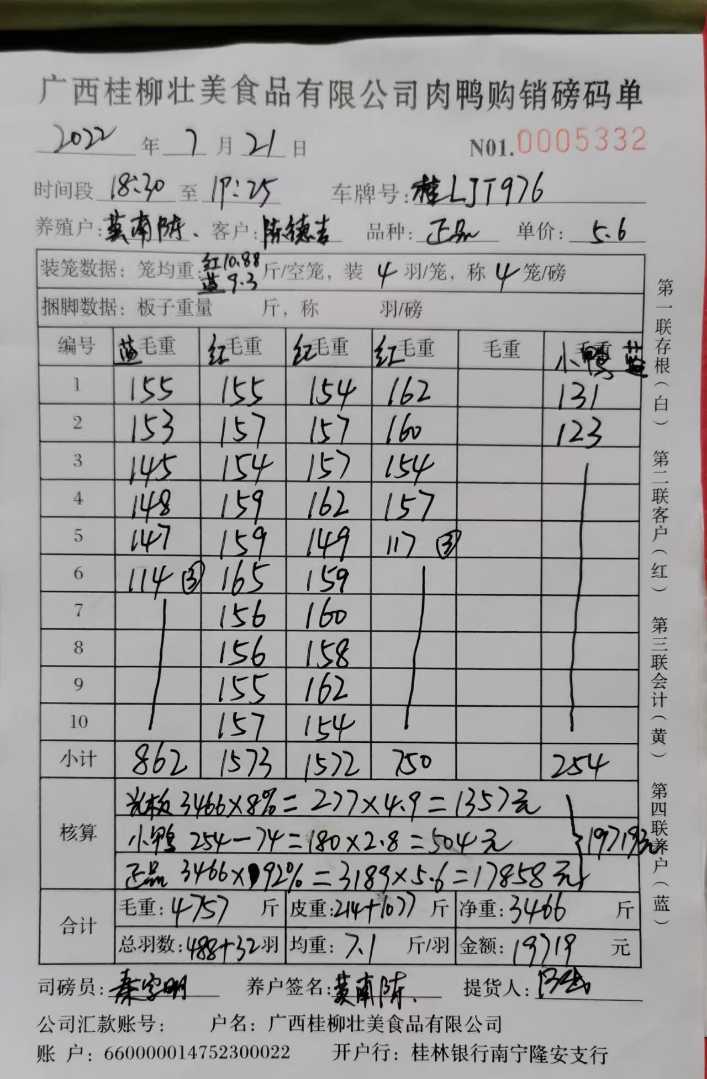 广西桂柳壮美食品有限公司肉鸭购销磅码单
2022 年 7 月 21 日 N01.0005332
时间段 18:30 至 19:25 车牌号: 桂LJT976
养殖户: 黄南陈 客户: 陈德吉 品种: 正品 单价: 5.6
装笼数据: 笼均重: 红10.88 蓝9.3 斤/空笼, 装 4 羽/笼, 称 4 笼/磅
捆脚数据: 板子重量 斤, 称 羽/磅
编号 蓝毛重 红毛重 红毛重 红毛重 毛重 小鸭 蓝
1 155 155 154 162 131
2 153 157 157 160 123
3 145 154 157 154
4 148 159 162 157
5 147 159 149 117 ③
6 114 ③ 165 159
7 156 160
8 156 158
9 155 162
10 157 154
小计 862 1573 1572 750 254
核算
光板 3466×8%=277×4.9=1357元
小鸭 254-74=180×2.8=504元
正品 3466×92%=3189×5.6=17858元
19719元
合计
毛重: 4757 斤 皮重: 214+1077 斤 净重: 3466 斤
总羽数: 488+32羽 均重: 7.1 斤/羽 金额: 19719 元
司磅员: 养户签名: 黄南陈 提货人:
公司汇款账号: 户名: 广西桂柳壮美食品有限公司
账 户: 660000014752300022 开户行: 桂林银行南宁隆安支行
第一联存根(白) 第二联客户(红) 第三联会计(黄) 第四联养户(蓝)